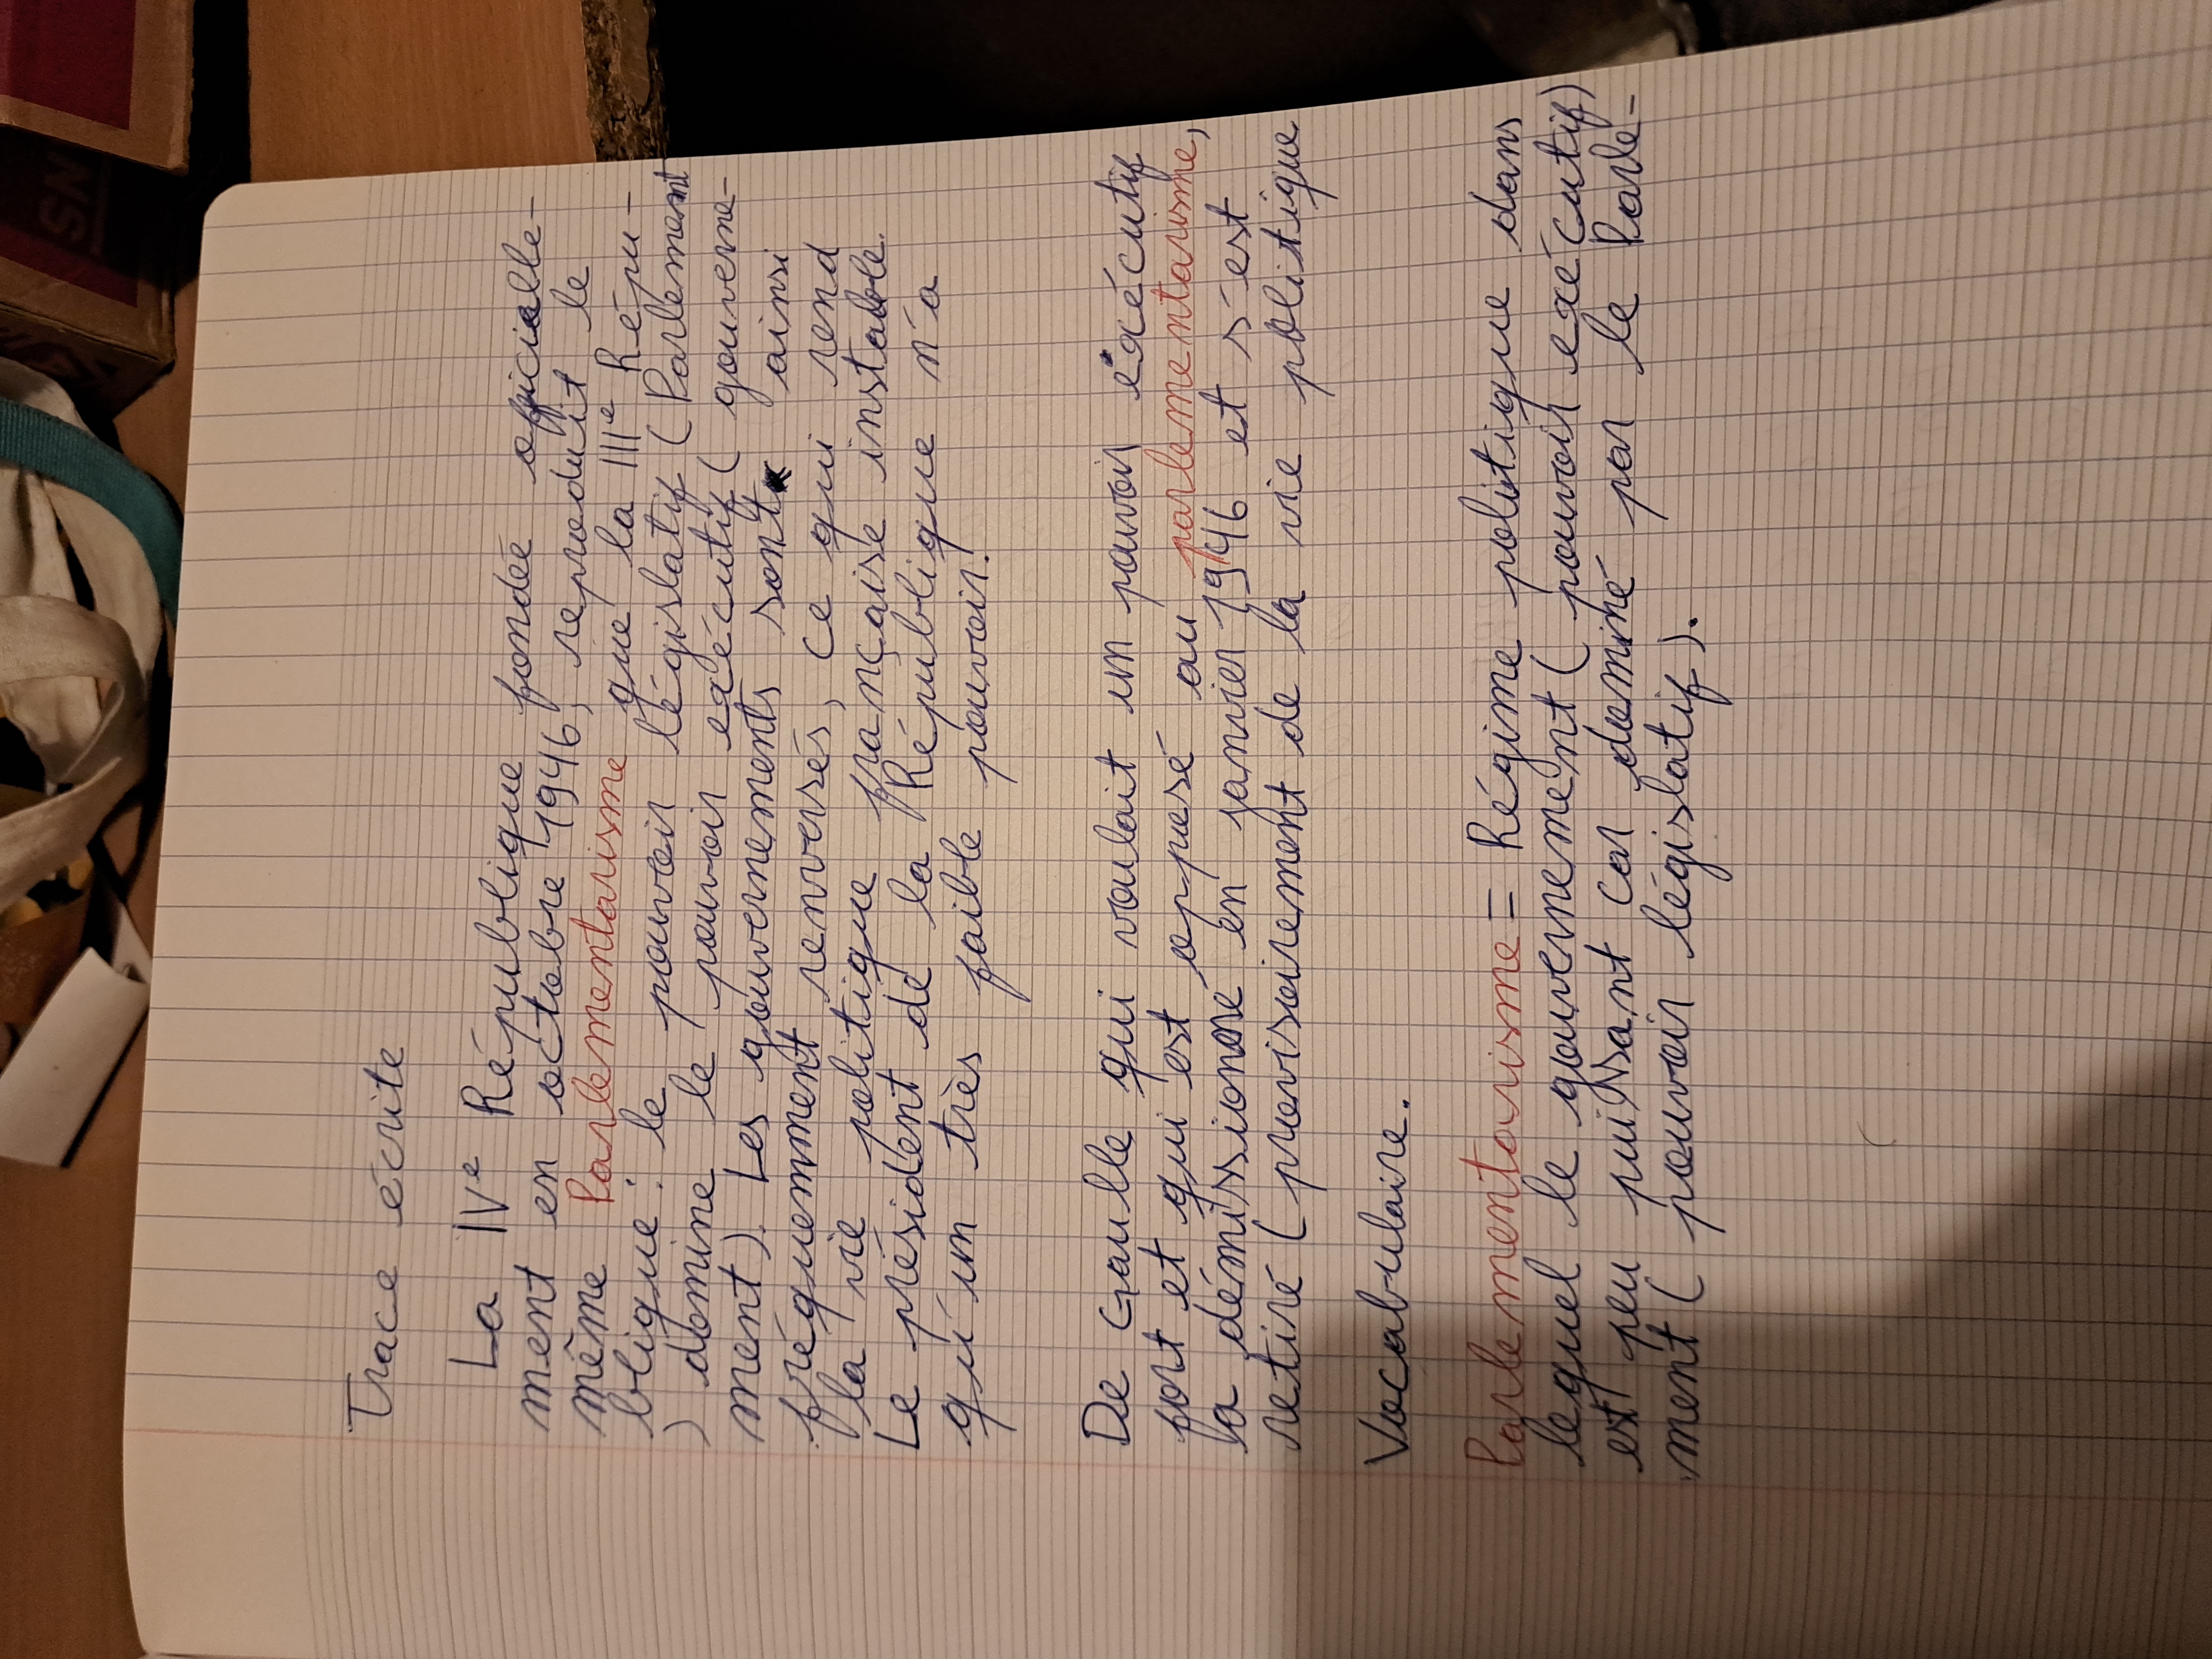 Trace écrite
La IVe République fondée officielle-
ment en octobre 1946, reproduit le
même Parlementarisme que la IIIe Répu-
blique : le pouvoir législatif (Parlement
) domine le pouvoir exécutif (gouverne-
ment). Les gouvernements sont ainsi
fréquemment renversés, ce qui rend
la vie politique française instable.
Le président de la République n'a
qu'un très faible pouvoir.
De Gaulle qui voulait un pouvoir éxécutif
fort et qui est opposé au parlementarisme,
la démissionné en janvier 1946 et s'est
retiré (provisoirement de la vie politique
Vocabulaire.
Parlementarisme = Régime politique dans
lequel le gouvernement (pouvoir exécutif)
est peu puissant car dominé par le Parle-
ment (pouvoir législatif).
SN